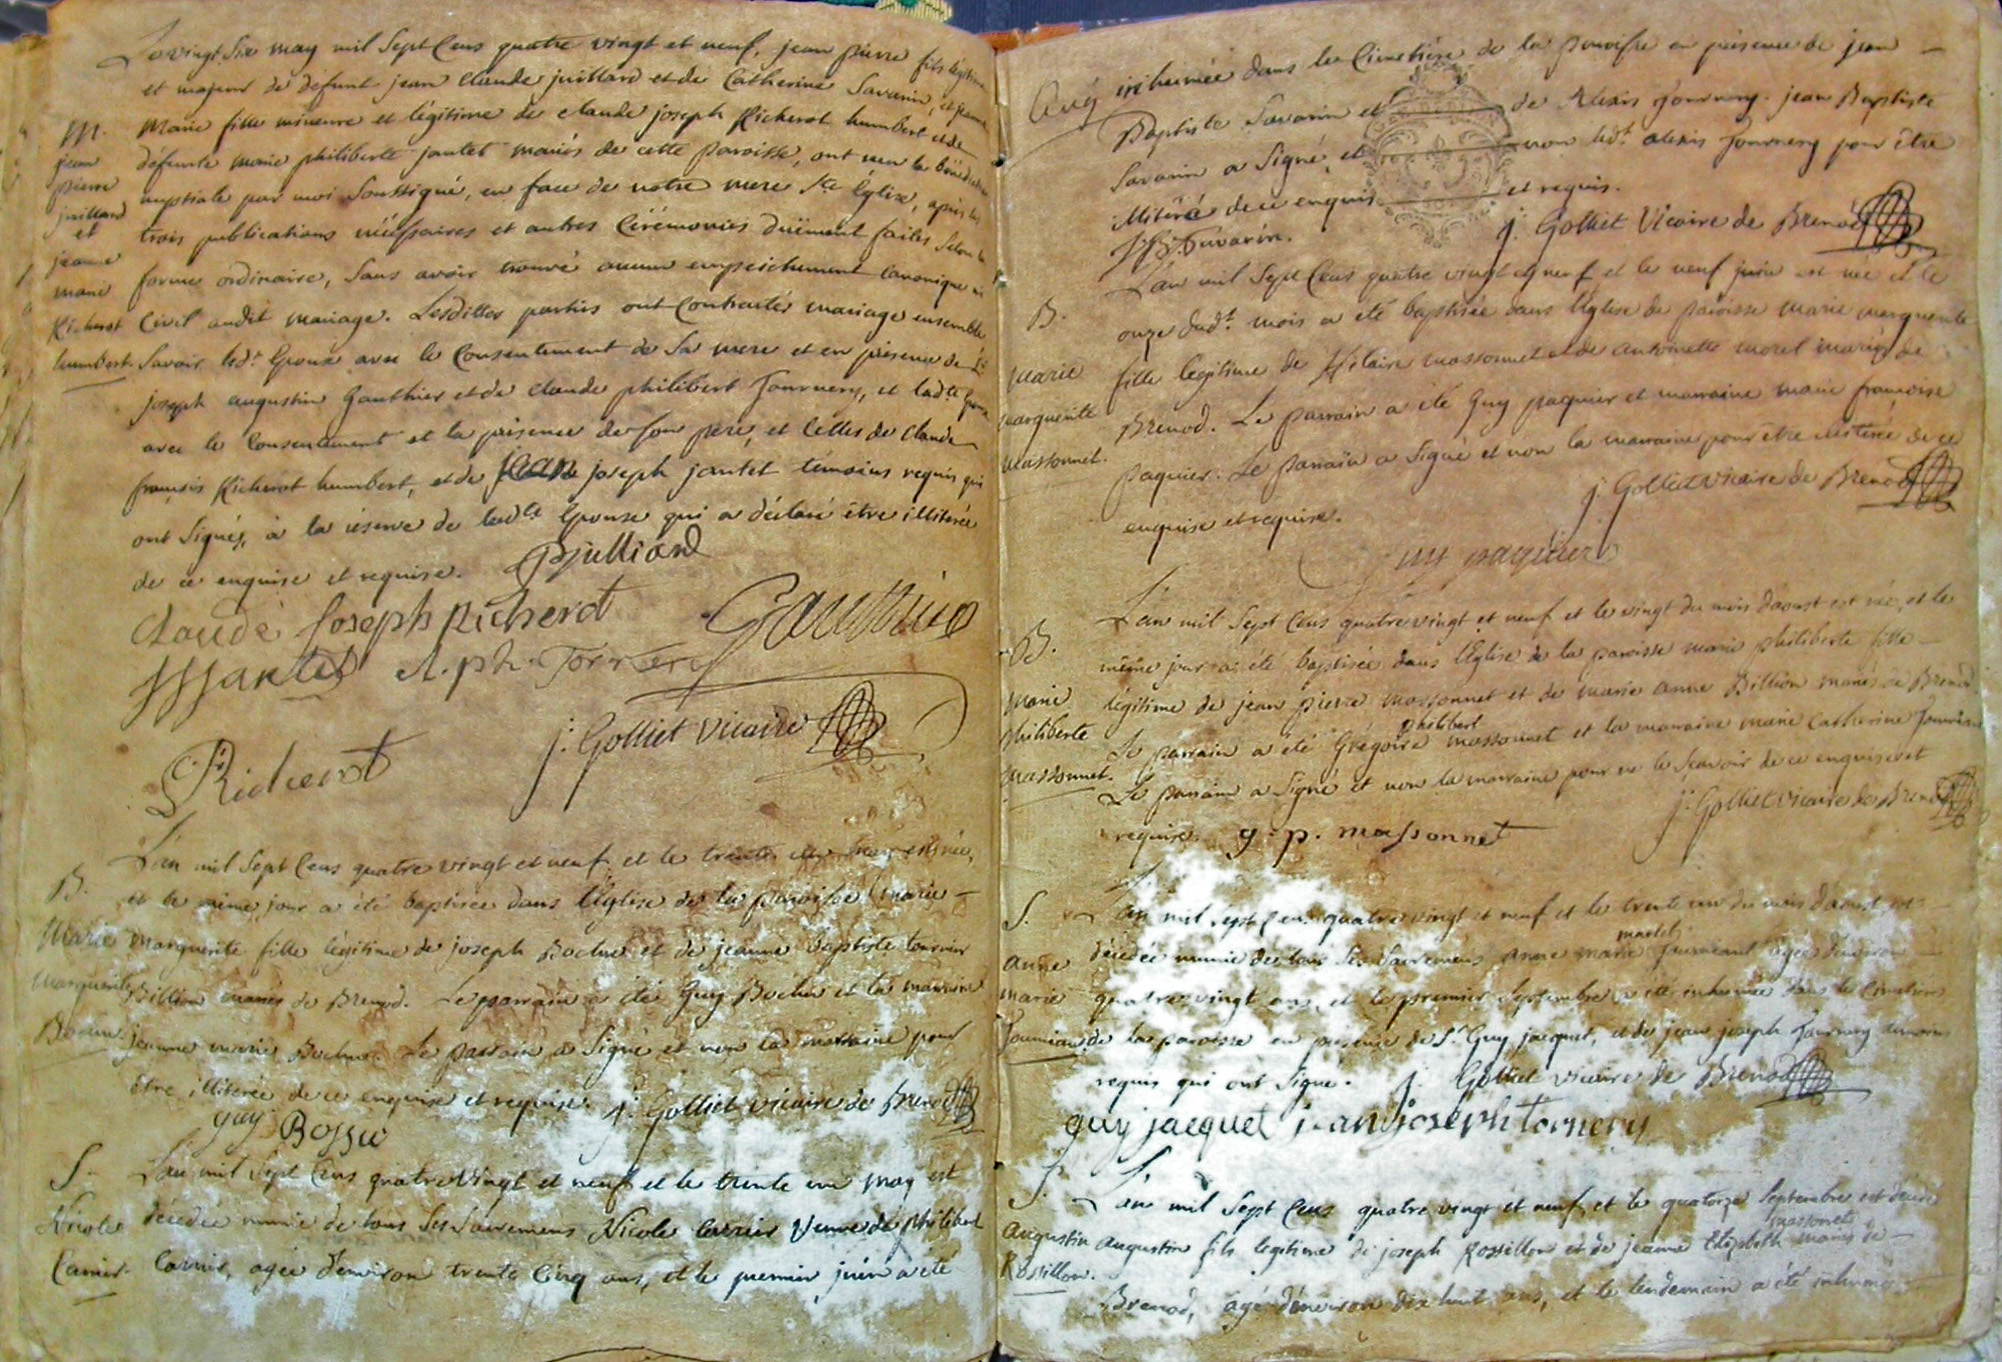 Le vingt Six may mil Sept Cens quatre vingt et neuf, jean pierre fils légitime
et majeur de défunt jean Claude juillard et de Catherine Savarin, et jeanne
M. Marie fille mineure et légitime de claude joseph Richerot humbert et de
jean défunte marie philiberte jantet mariés de cette paroisse, ont reçu la bénédiction
pierre nuptiale par moi Soussigné, en face de notre mere Ste Église, après les
juillard trois publications nécessaires et autres Cérémonies düement faites Selon la
et
jeanne forme ordinaire, Sans avoir trouvé aucun empeichement canonique ni
marie
Richerot Civil audit mariage. Lesdittes parties ont Contractés mariage ensemble
humbert. Savoir led.t Epoux avec le Consentement de Sa mere et en présence de
joseph augustin Gauthier et de claude philibert Tournery, et lad.te Epouse
avec le Consentement et la présence de son pere, et Celles de Claude
francois Richerot humbert, et de jean joseph jantet témoins requis qui
ont Signés, à la réserve de lad.te Epouse qui a déclaré être illiterée
de ce enquise et requise. PJulliard
claude Joseph Richerot Gauthier
JJJantet
C. ph. Torrnery
Richerot j. Golliet Vicaire
L'an mil Sept Cens quatre vingt et neuf et le trente un may est née,
B. et le même jour a été baptisée dans l'Église de la paroisse marie
Marie marguerite fille légitime de joseph Bochu et de jeanne baptiste tournier
Marguerite Billion mariés de Brenod. Le parrain a été Guy Bochu et la marraine
Bochu. jeanne marie Bochu. Le parrain a Signé et non la marraine pour
être illiterée de ce enquise et requise. j. Golliet vicaire de Brenod
guy Bossu
S. L'an mil Sept Cens quatre Vingt et neuf et le trente un may est
Nicole décédée munie de tous Ses Sacremens Nicole Carrier Veuve de philibert
Carrier. Carrier, agée d'environ trente Cinq ans, et le premier juin a été
inhumée dans le Cimetière de la paroisse en présence de jean
Baptiste Savarin et de Alexis Tournery. jean Baptiste
Savarin a Signé, et non led.t alexis Tournery pour être
illitéré de ce enquis et requis.
JB. Savarin. j. Golliet Vicaire de Brenod
L'an mil Sept Cens quatre vingt et neuf et le neuf juin est née et le
B. onze dud.t mois a été baptisée dans l'église de paroisse marie marguerite
Marie fille legitime de Hilaire massonnet et de antoinette morel mariés de
marguerite Brenod. Le parrain a été Guy paquier et marraine marie françoise
massonnet. paquier. Le parrain a Signé et non la marraine pour être illiterée de ce
enquise et requise. j. Golliet vicaire de Brenod
guy paquier
L'an mil Sept Cens quatre vingt et neuf et le vingt du mois d'aoust est née, et le
B. même jour a été baptisée dans l'Eglise de la paroisse marie philiberte fille
Marie légitime de jean pierre massonnet et de marie anne Billion mariés de Brenod
philiberte Le parrain a été Grégoire philibert massonnet et la marraine marie catherine
massonnet. Le parrain a Signé et non la marraine pour ne le Sçavoir de ce enquise et
requise. g. p. massonnet j. Golliet vicaire de Brenod
S. L'an mil Sept Cens quatre vingt et neuf et le trente un du mois d'aoust est
anne décédée munie de tous Ses Sacremens anne marie agée d'environ
marie quatre vingt ans, et le premier Septembre a été inhumée dans le Cimetière
de la paroisse en présence de S.r Guy jacquet, et de jean joseph Tournery témoins
requis qui ont Signé. j. Golliet vicaire de Brenod
guy jacquet jean joseph tornery
S. L'an mil Sept Cens quatre vingt et neuf, et le quatorze Septembre est décédé
augustin augustin fils legitime de joseph Rossillon et de jeanne Elizabeth massonnet mariés de
Rossillon. Brenod, agé d'environ dix huit ans, et le lendemain a été inhumé